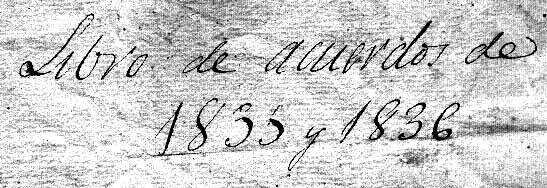 Libro de acuerdos de
1835 y 1836